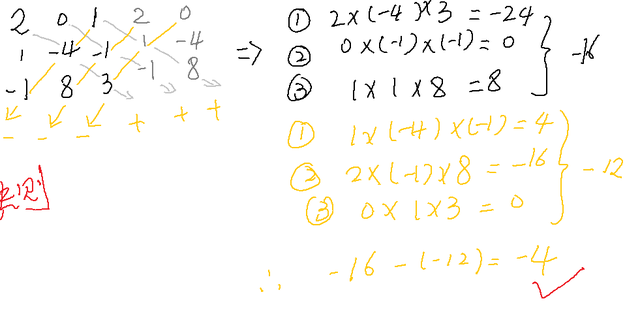 2 0 1 2 0
1 -4 -1 1 -4
-1 8 3 -1 8
- - - + + +
=>
① 2×(-4)×3 = -24
② 0×(-1)×(-1) = 0
③ 1×1×8 = 8
} -16
① 1×(-4)×(-1) = 4
② 2×(-1)×8 = -16
③ 0×1×3 = 0
} -12
∴ -16-(-12) = -4